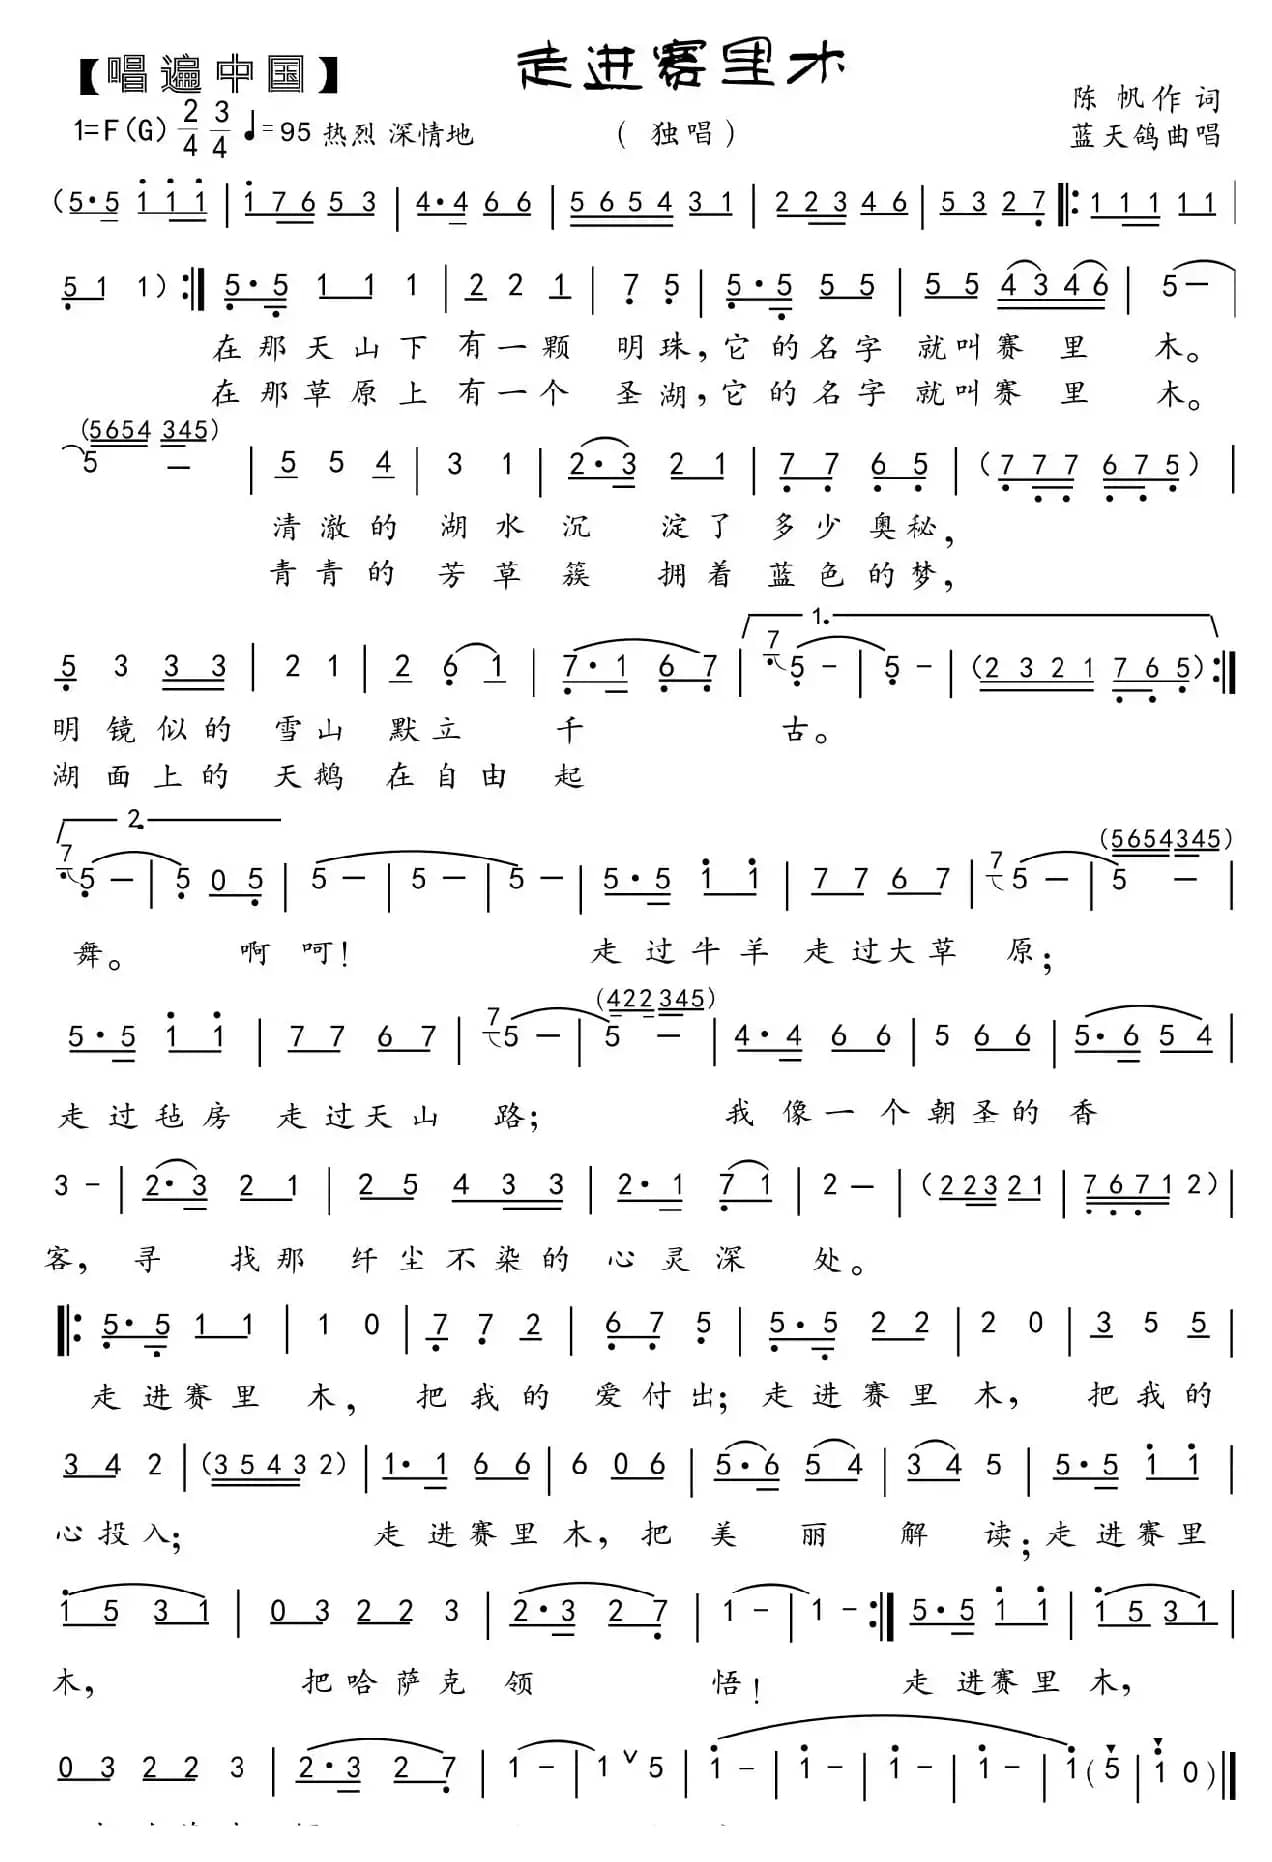 【唱遍中国】
走进赛里木
陈帆作词
1=F(G) 2/4 3/4 ♩=95 热烈 深情地
(独唱)
蓝天鸽曲唱
(5·5 1 1 1 | 1 7 6 5 3 | 4·4 6 6 | 5 6 5 4 3 1 | 2 2 3 4 6 | 5 3 2 7 |: 1 1 1 1 1 |
5 1 1) :| 5·5 1 1 1 | 2 2 1 | 7 5 | 5·5 5 5 | 5 5 4 3 4 6 | 5 — |
在那天山下有一颗 明珠,它的名字 就叫赛里 木。
在那草原上有一个 圣湖,它的名字 就叫赛里 木。
(5654 345)
5 — | 5 5 4 | 3 1 | 2·3 2 1 | 7 7 6 5 | (7 7 7 6 7 5) |
清澈的 湖水沉 淀了 多少奥秘,
青青的 芳草簇 拥着 蓝色的梦,
1.
5 3 3 3 | 2 1 | 2 6 1 | 7·1 6 7 | 7 5 - | 5 - | (2 3 2 1 7 6 5) :|
明镜似的 雪山 默立 千 古。
湖面上的 天鹅 在自由 起
2.
(5654345)
7 5 — | 5 0 5 | 5 — | 5 — | 5 — | 5·5 1 1 | 7 7 6 7 | 7 5 — | 5 — |
舞。 啊 呵! 走过牛羊 走过大草 原;
(422 345)
5·5 1 1 | 7 7 6 7 | 7 5 — | 5 — | 4·4 6 6 | 5 6 6 | 5·6 5 4 |
走过毡房 走过天山 路; 我像一个朝圣的香
3 - | 2·3 2 1 | 2 5 4 3 3 | 2·1 7 1 | 2 — | (2 2 3 2 1 | 7 6 7 1 2) |
客, 寻 找那 纤尘不染的 心灵深 处。
|: 5·5 1 1 | 1 0 | 7 7 2 | 6 7 5 | 5·5 2 2 | 2 0 | 3 5 5 |
走进赛里 木, 把我的 爱付出; 走进赛里 木, 把我的
3 4 2 | (3 5 4 3 2) | 1·1 6 6 | 6 0 6 | 5·6 5 4 | 3 4 5 | 5·5 1 1 |
心投入; 走进赛里木,把 美 丽 解 读;走进赛里
1 5 3 1 | 0 3 2 2 3 | 2·3 2 7 | 1 - | 1 - :| 5·5 1 1 | 1 5 3 1 |
木, 把哈萨克 领 悟! 走进赛里 木,
0 3 2 2 3 | 2·3 2 7 | 1 — | 1 ∨ 5 | 1 - | 1 - | 1 - | 1 - | 1 (5 | 1 0) ‖